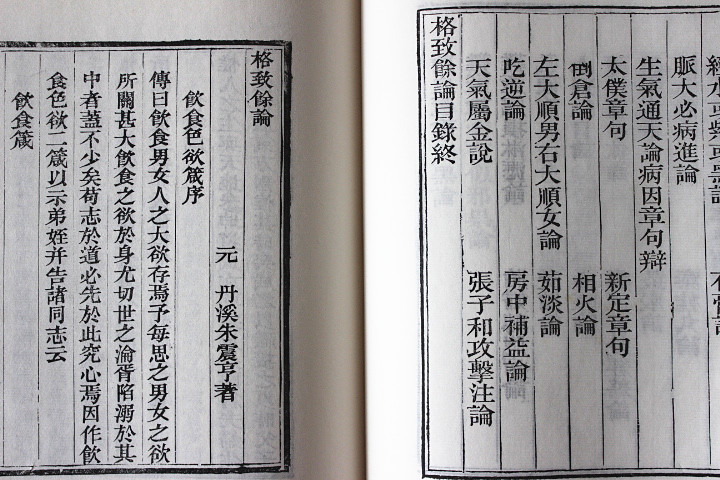 脈大必病進論
生氣通天論病因章句辯
太僕章句 新定章句
倒倉論 相火論
左大順男右大順女論 茹淡論
吃逆論 房中補益論
天氣屬金說 張子和攻擊注論
格致餘論目錄終
格致餘論
元 丹溪朱震亨著
飲食色欲箴序
傳曰飲食男女人之大欲存焉予每思之男女之欲
所關甚大飲食之欲於身尤切世之淪胥陷溺於其
中者蓋不少矣苟志於道必先於此究心焉因作飲
食色欲二箴以示弟姪并告諸同志云
飲食箴